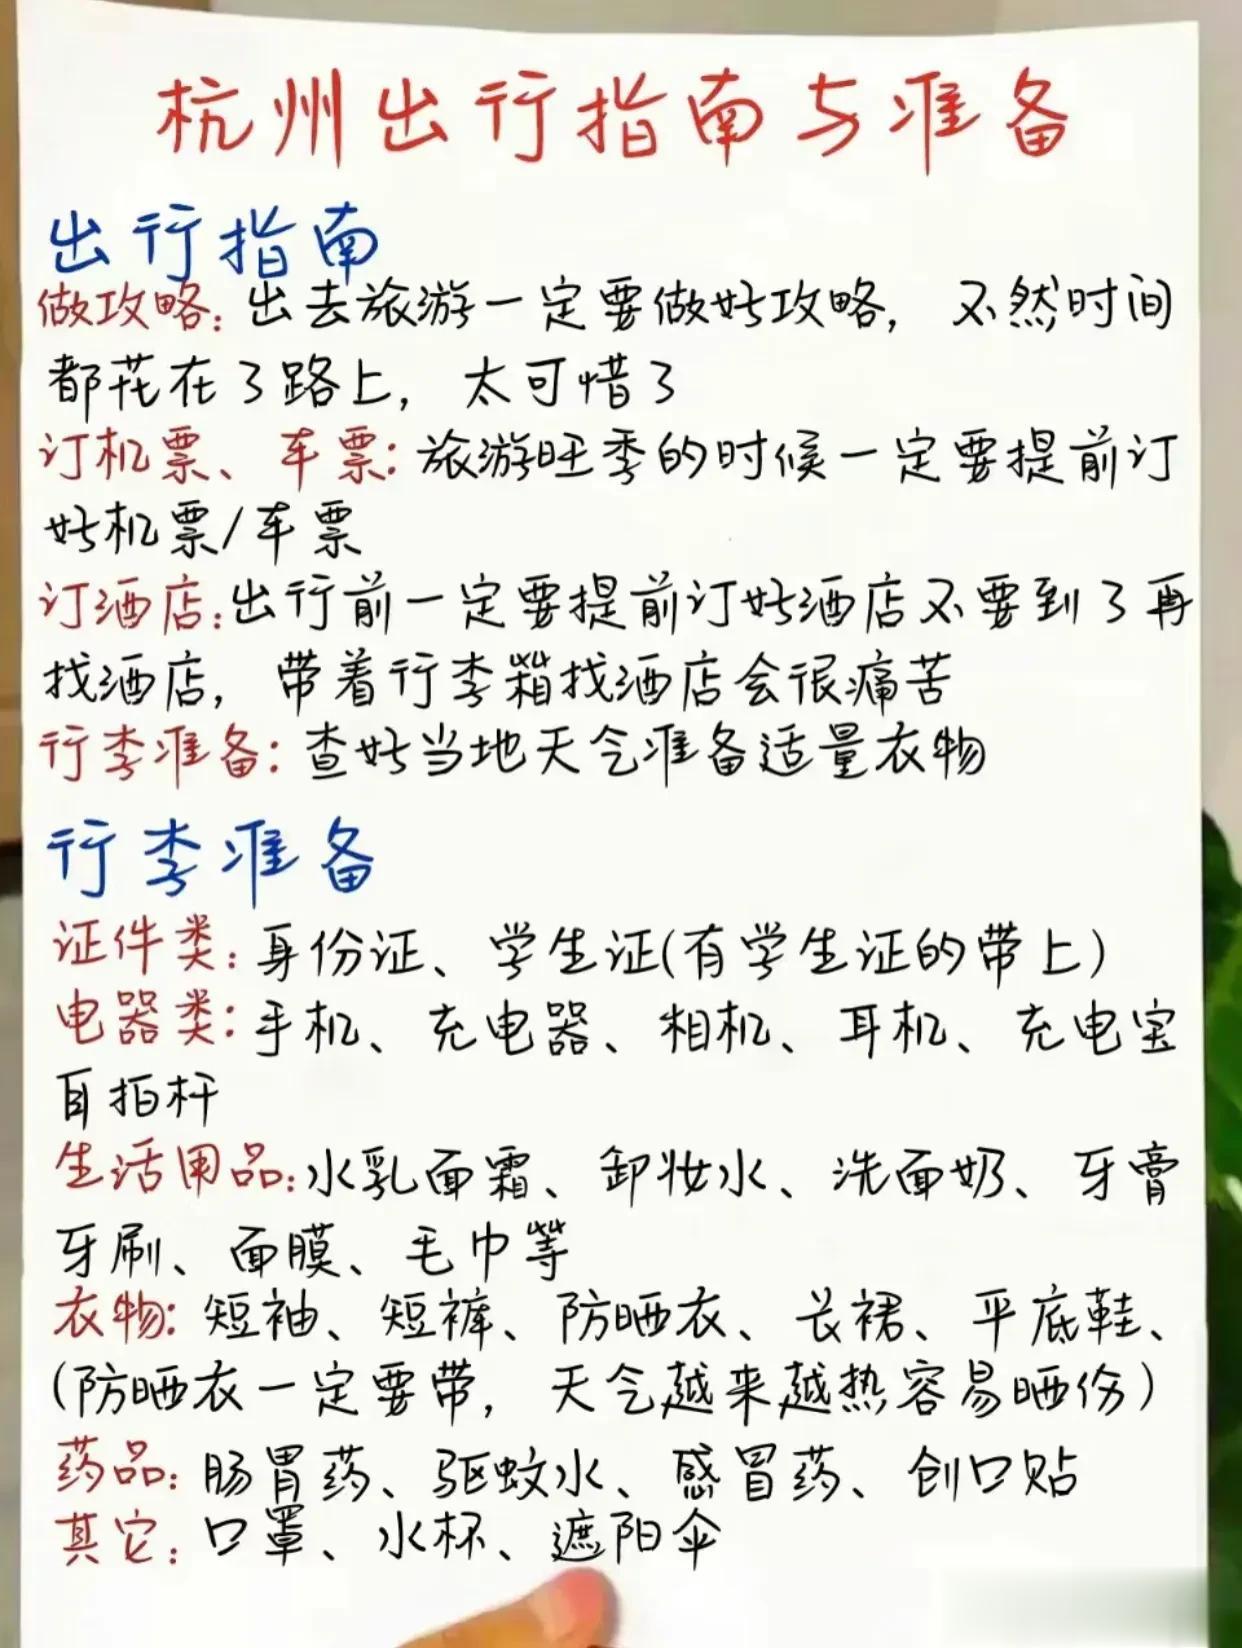 杭州出行指南与准备
出行指南
做攻略：出去旅游一定要做好攻略，不然时间
都花在了路上，太可惜了
订机票、车票：旅游旺季的时候一定要提前订
好机票/车票
订酒店：出行前一定要提前订好酒店不要到了再
找酒店，带着行李箱找酒店会很痛苦
行李准备：查好当地天气准备适量衣物
行李准备
证件类：身份证、学生证(有学生证的带上)
电器类：手机、充电器、相机、耳机、充电宝
自拍杆
生活用品：水乳面霜、卸妆水、洗面奶、牙膏
牙刷、面膜、毛巾等
衣物：短袖、短裤、防晒衣、长裙、平底鞋、
(防晒衣一定要带，天气越来越热容易晒伤)
药品：肠胃药、驱蚊水、感冒药、创口贴
其它：口罩、水杯、遮阳伞